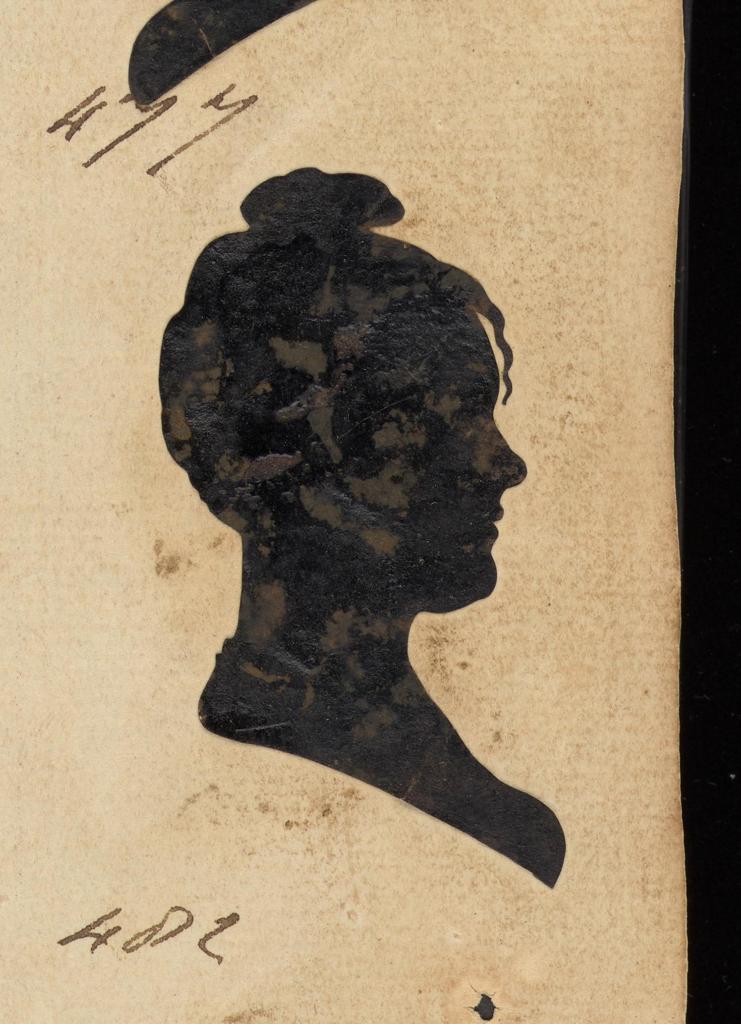 477
482